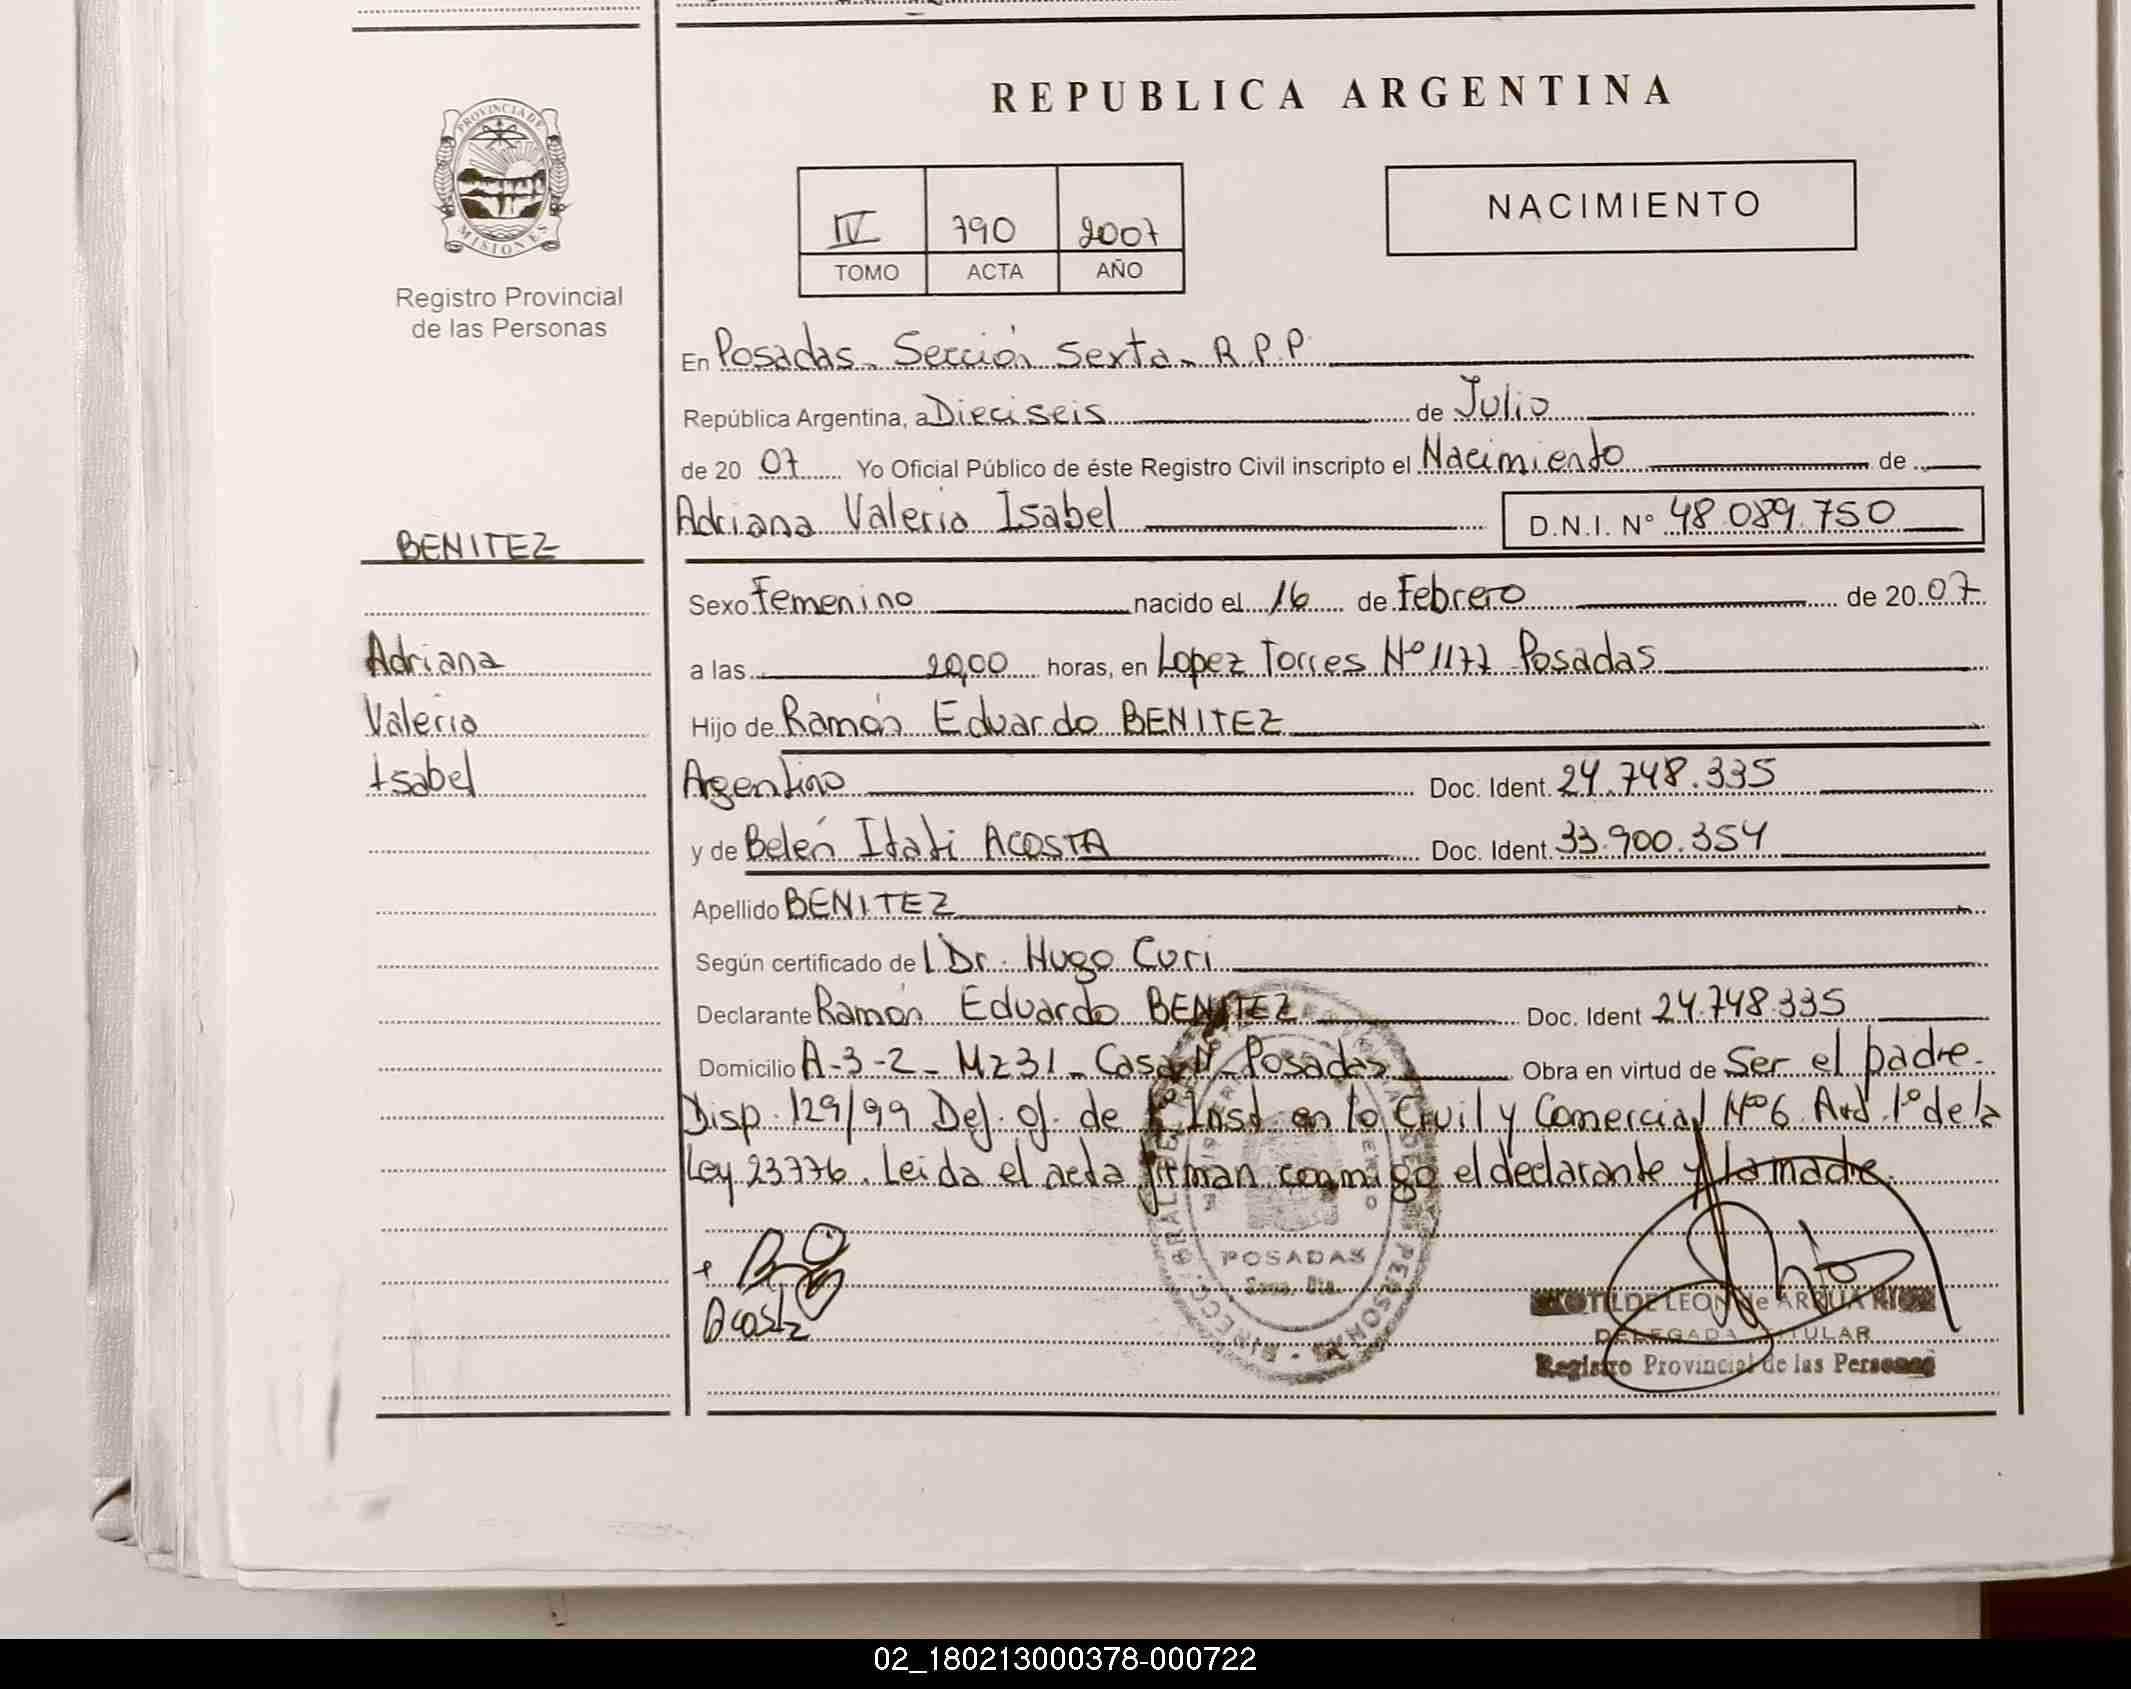 REPUBLICA ARGENTINA
PROVINCIA DE
MISIONES
Registro Provincial
de las Personas
IV 790 2007
TOMO ACTA AÑO
NACIMIENTO
En Posadas. Sección Sexta. R.P.P.
República Argentina, a Dieciseis de Julio
de 20 07 Yo Oficial Público de éste Registro Civil inscripto el Nacimiento de
Adriana Valeria Isabel D.N.I. N° 48.089.750
BENITEZ
Sexo Femenino nacido el 16 de Febrero de 20 07
Adriana
a las 20,00 horas, en Lopez Torres N° 1177 Posadas
Valeria
Hijo de Ramón Eduardo BENITEZ
Isabel
Agentino Doc. Ident. 24.748.335
y de Belén Itati ACOSTA Doc. Ident. 33.900.354
Apellido BENITEZ
Según certificado del Dr. Hugo Curi
Declarante Ramón Eduardo BENITEZ Doc. Ident 24.748.335
Domicilio A-3-2- Mz31- Casa Posadas Obra en virtud de Ser el padre.
Disp. 129/99 Def. of. de Inst en lo Civil y Comercial N°6 Art 1° de la
Ley 23776. Leida el acta firman conmigo el declarante y la madre.
POSADAS
Acosta
LEON de ARRUA
DELEGADA TITULAR
Registro Provincial de las Personas
02_180213000378-000722